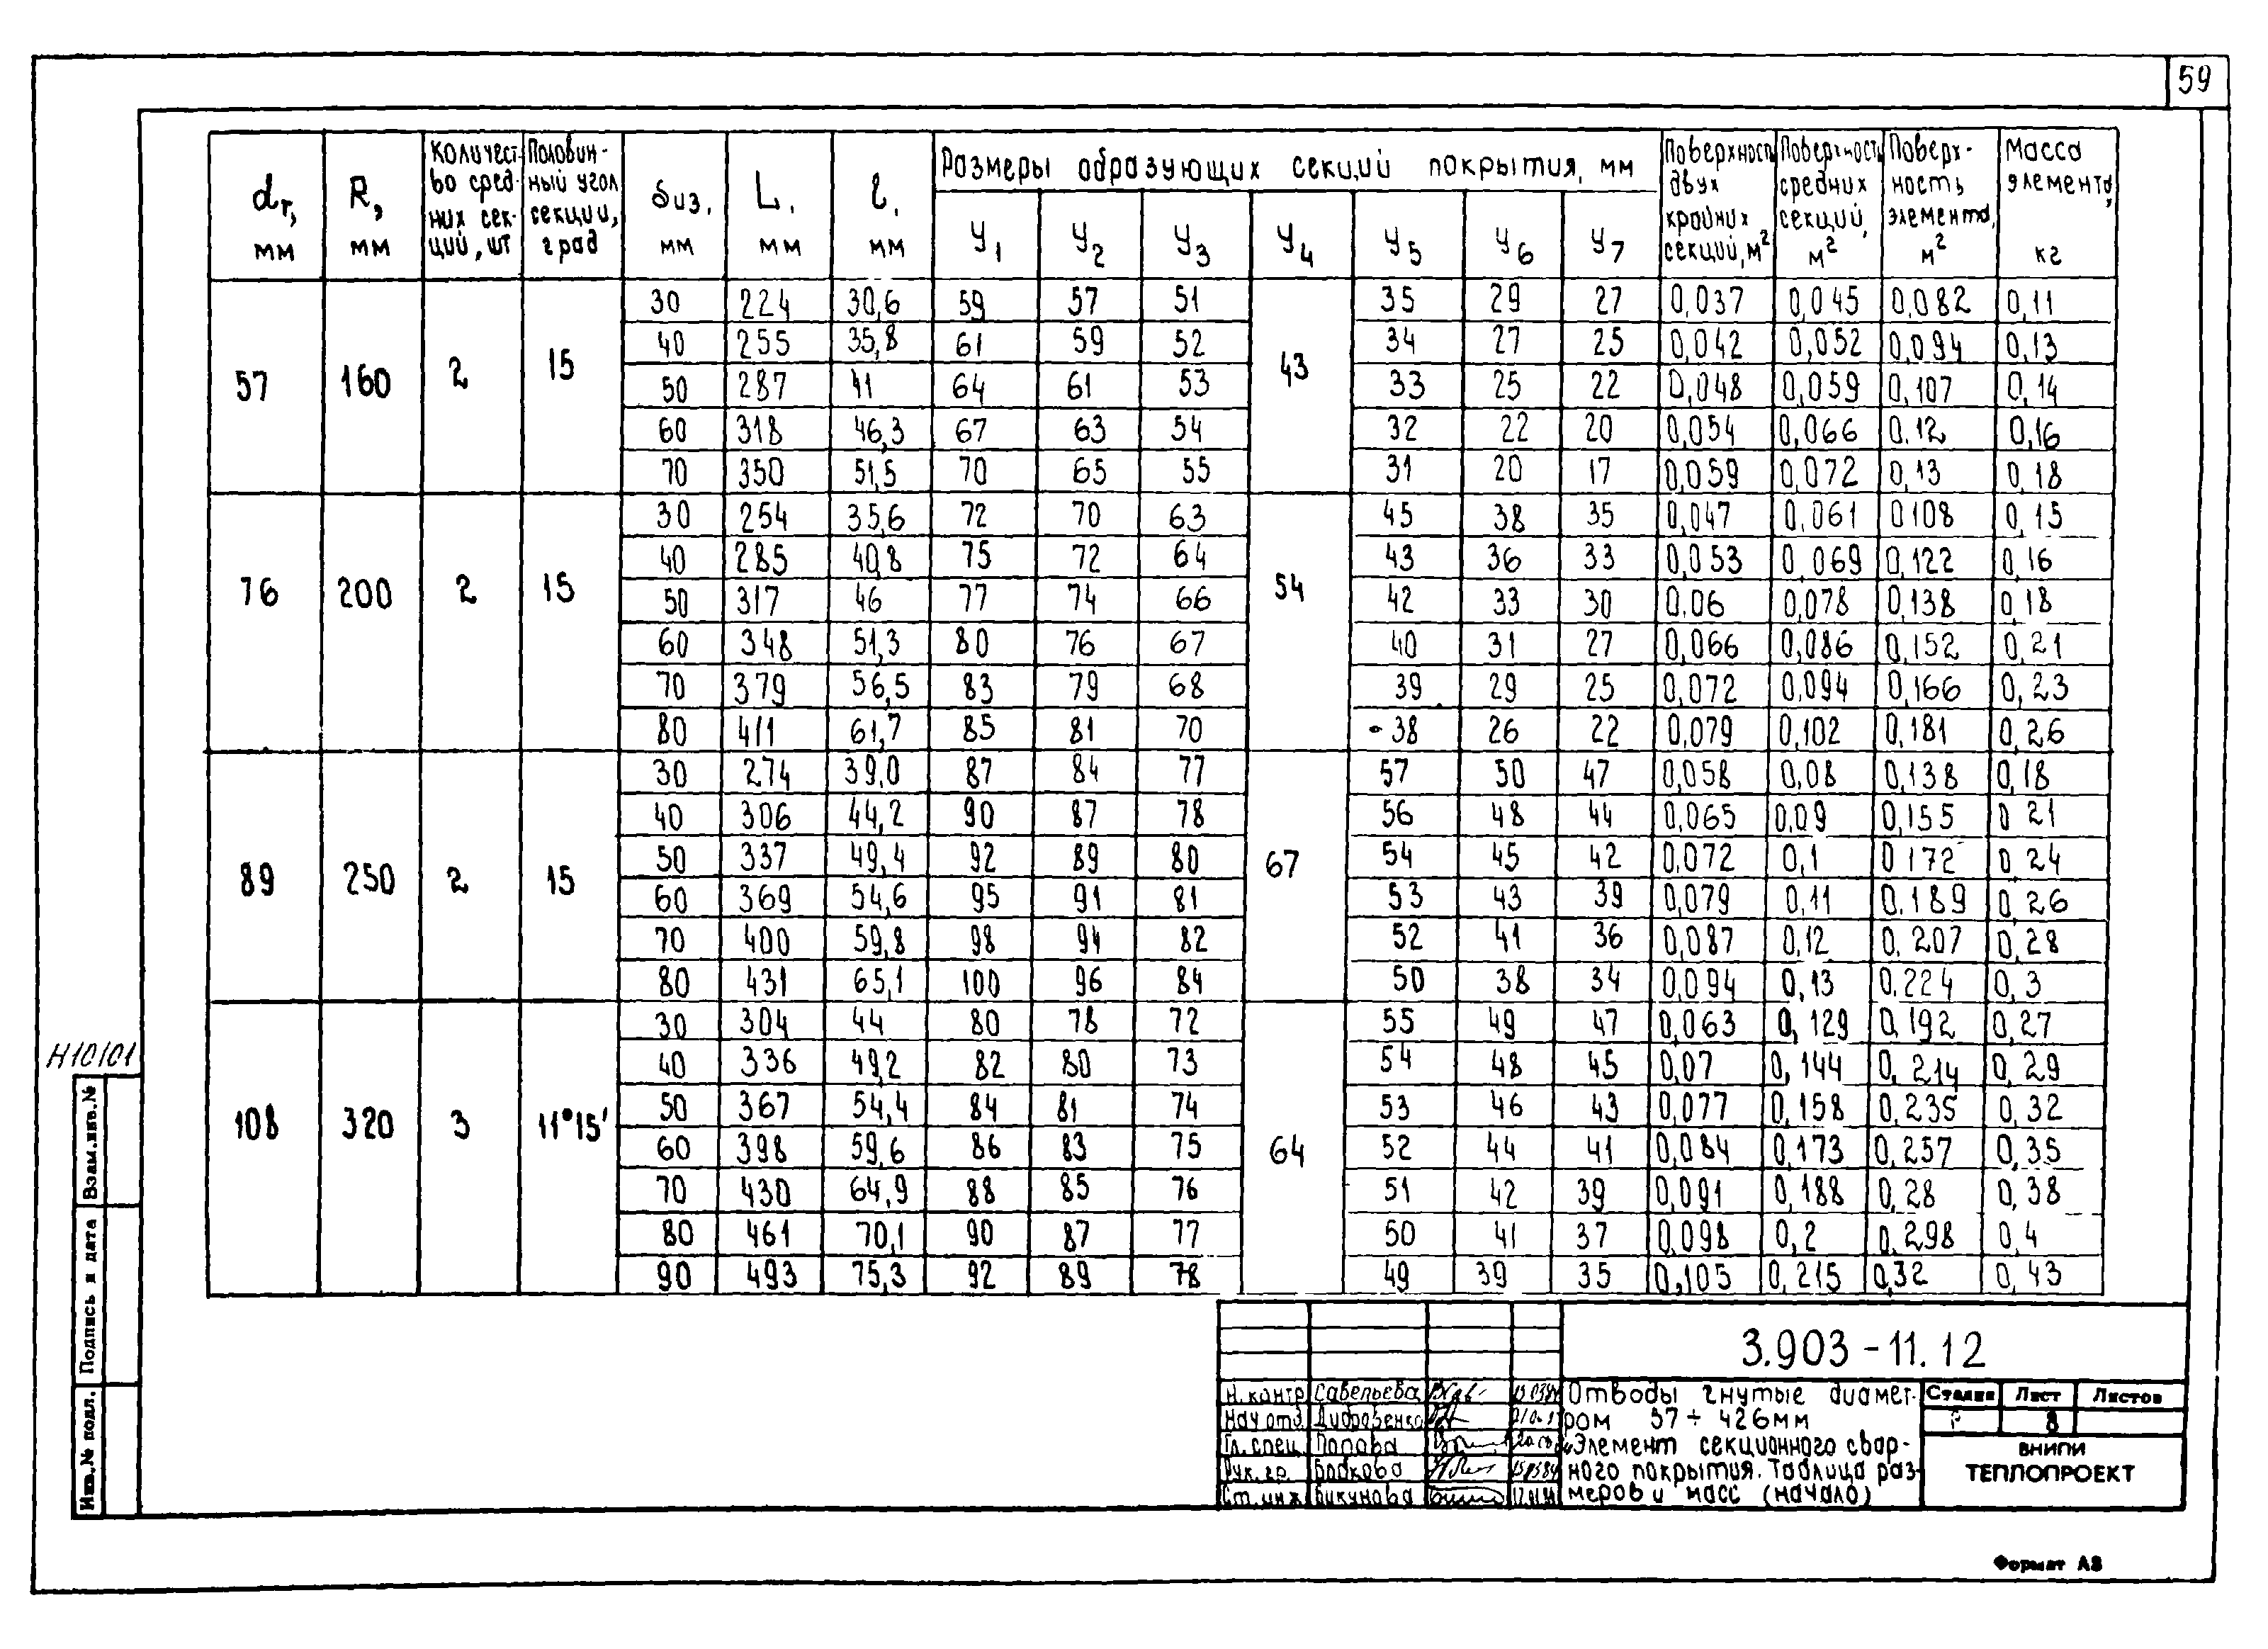 59
dт, мм R, мм Количест- во сред- них сек- ций, шт Половин- ный угол секции, град δиз. мм L, мм ℓ, мм Размеры образующих секций покрытия, мм Поверхность двух крайних секций, м² Поверхность средних секций, м² Поверх- ность элемента, м² Масса элемента, кг
У1 У2 У3 У4 У5 У6 У7
57 160 2 15 43
30 224 30,6 59 57 51 35 29 27 0,037 0,045 0,082 0,11
40 255 35,8 61 59 52 34 27 25 0,042 0,052 0,094 0,13
50 287 41 64 61 53 33 25 22 0,048 0,059 0,107 0,14
60 318 46,3 67 63 54 32 22 20 0,054 0,066 0.12 0,16
70 350 51,5 70 65 55 31 20 17 0,059 0,072 0,13 0,18
76 200 2 15 54
30 254 35,6 72 70 63 45 38 35 0,047 0,061 0108 0,15
40 285 40,8 75 72 64 43 36 33 0,053 0,069 0,122 0,16
50 317 46 77 74 66 42 33 30 0,06 0,078 0,138 0,18
60 348 51,3 80 76 67 40 31 27 0,066 0,086 0,152 0,21
70 379 56,5 83 79 68 39 29 25 0,072 0,094 0,166 0,23
80 411 61,7 85 81 70 38 26 22 0,079 0,102 0,181 0,26
89 250 2 15 67
30 274 39,0 87 84 77 57 50 47 0,058 0,08 0,138 0,18
40 306 44,2 90 87 78 56 48 44 0,065 0,09 0,155 0 21
50 337 49,4 92 89 80 54 45 42 0,072 0,1 0 172 0,24
60 369 54,6 95 91 81 53 43 39 0,079 0,11 0.189 0,26
70 400 59,8 98 94 82 52 41 36 0,087 0,12 0,207 0,28
80 431 65,1 100 96 84 50 38 34 0,094 0,13 0.224 0,3
108 320 3 11°15' 64
30 304 44 80 78 72 55 49 47 0,063 0,129 0,192 0,27
40 336 49,2 82 80 73 54 48 45 0,07 0,144 0,214 0,29
50 367 54,4 84 81 74 53 46 43 0,077 0,158 0,235 0,32
60 398 59,6 86 83 75 52 44 41 0,084 0,173 0,257 0,35
70 430 64,9 88 85 76 51 42 39 0,091 0,188 0,28 0,38
80 461 70,1 90 87 77 50 41 37 0,098 0,2 0,298 0,4
90 493 75,3 92 89 78 49 39 35 0,105 0,215 0,32 0,43
Н10101
Взам.инв.№
Подпись и дата
Инв.№ подл.
3.903-11.12
Н.контр Савельева
Нач отд.
Гл. спец. Попова
Рук. гр. Бобкова
Ст. инж Бикунова
Отводы гнутые диамет-
ром 57÷426мм
„Элемент секционного свар-
ного покрытия. Таблица раз-
меров и масс (начало)
Стадия Лист Листов
Р 8
ВНИПИ
ТЕПЛОПРОЕКТ
Формат А3